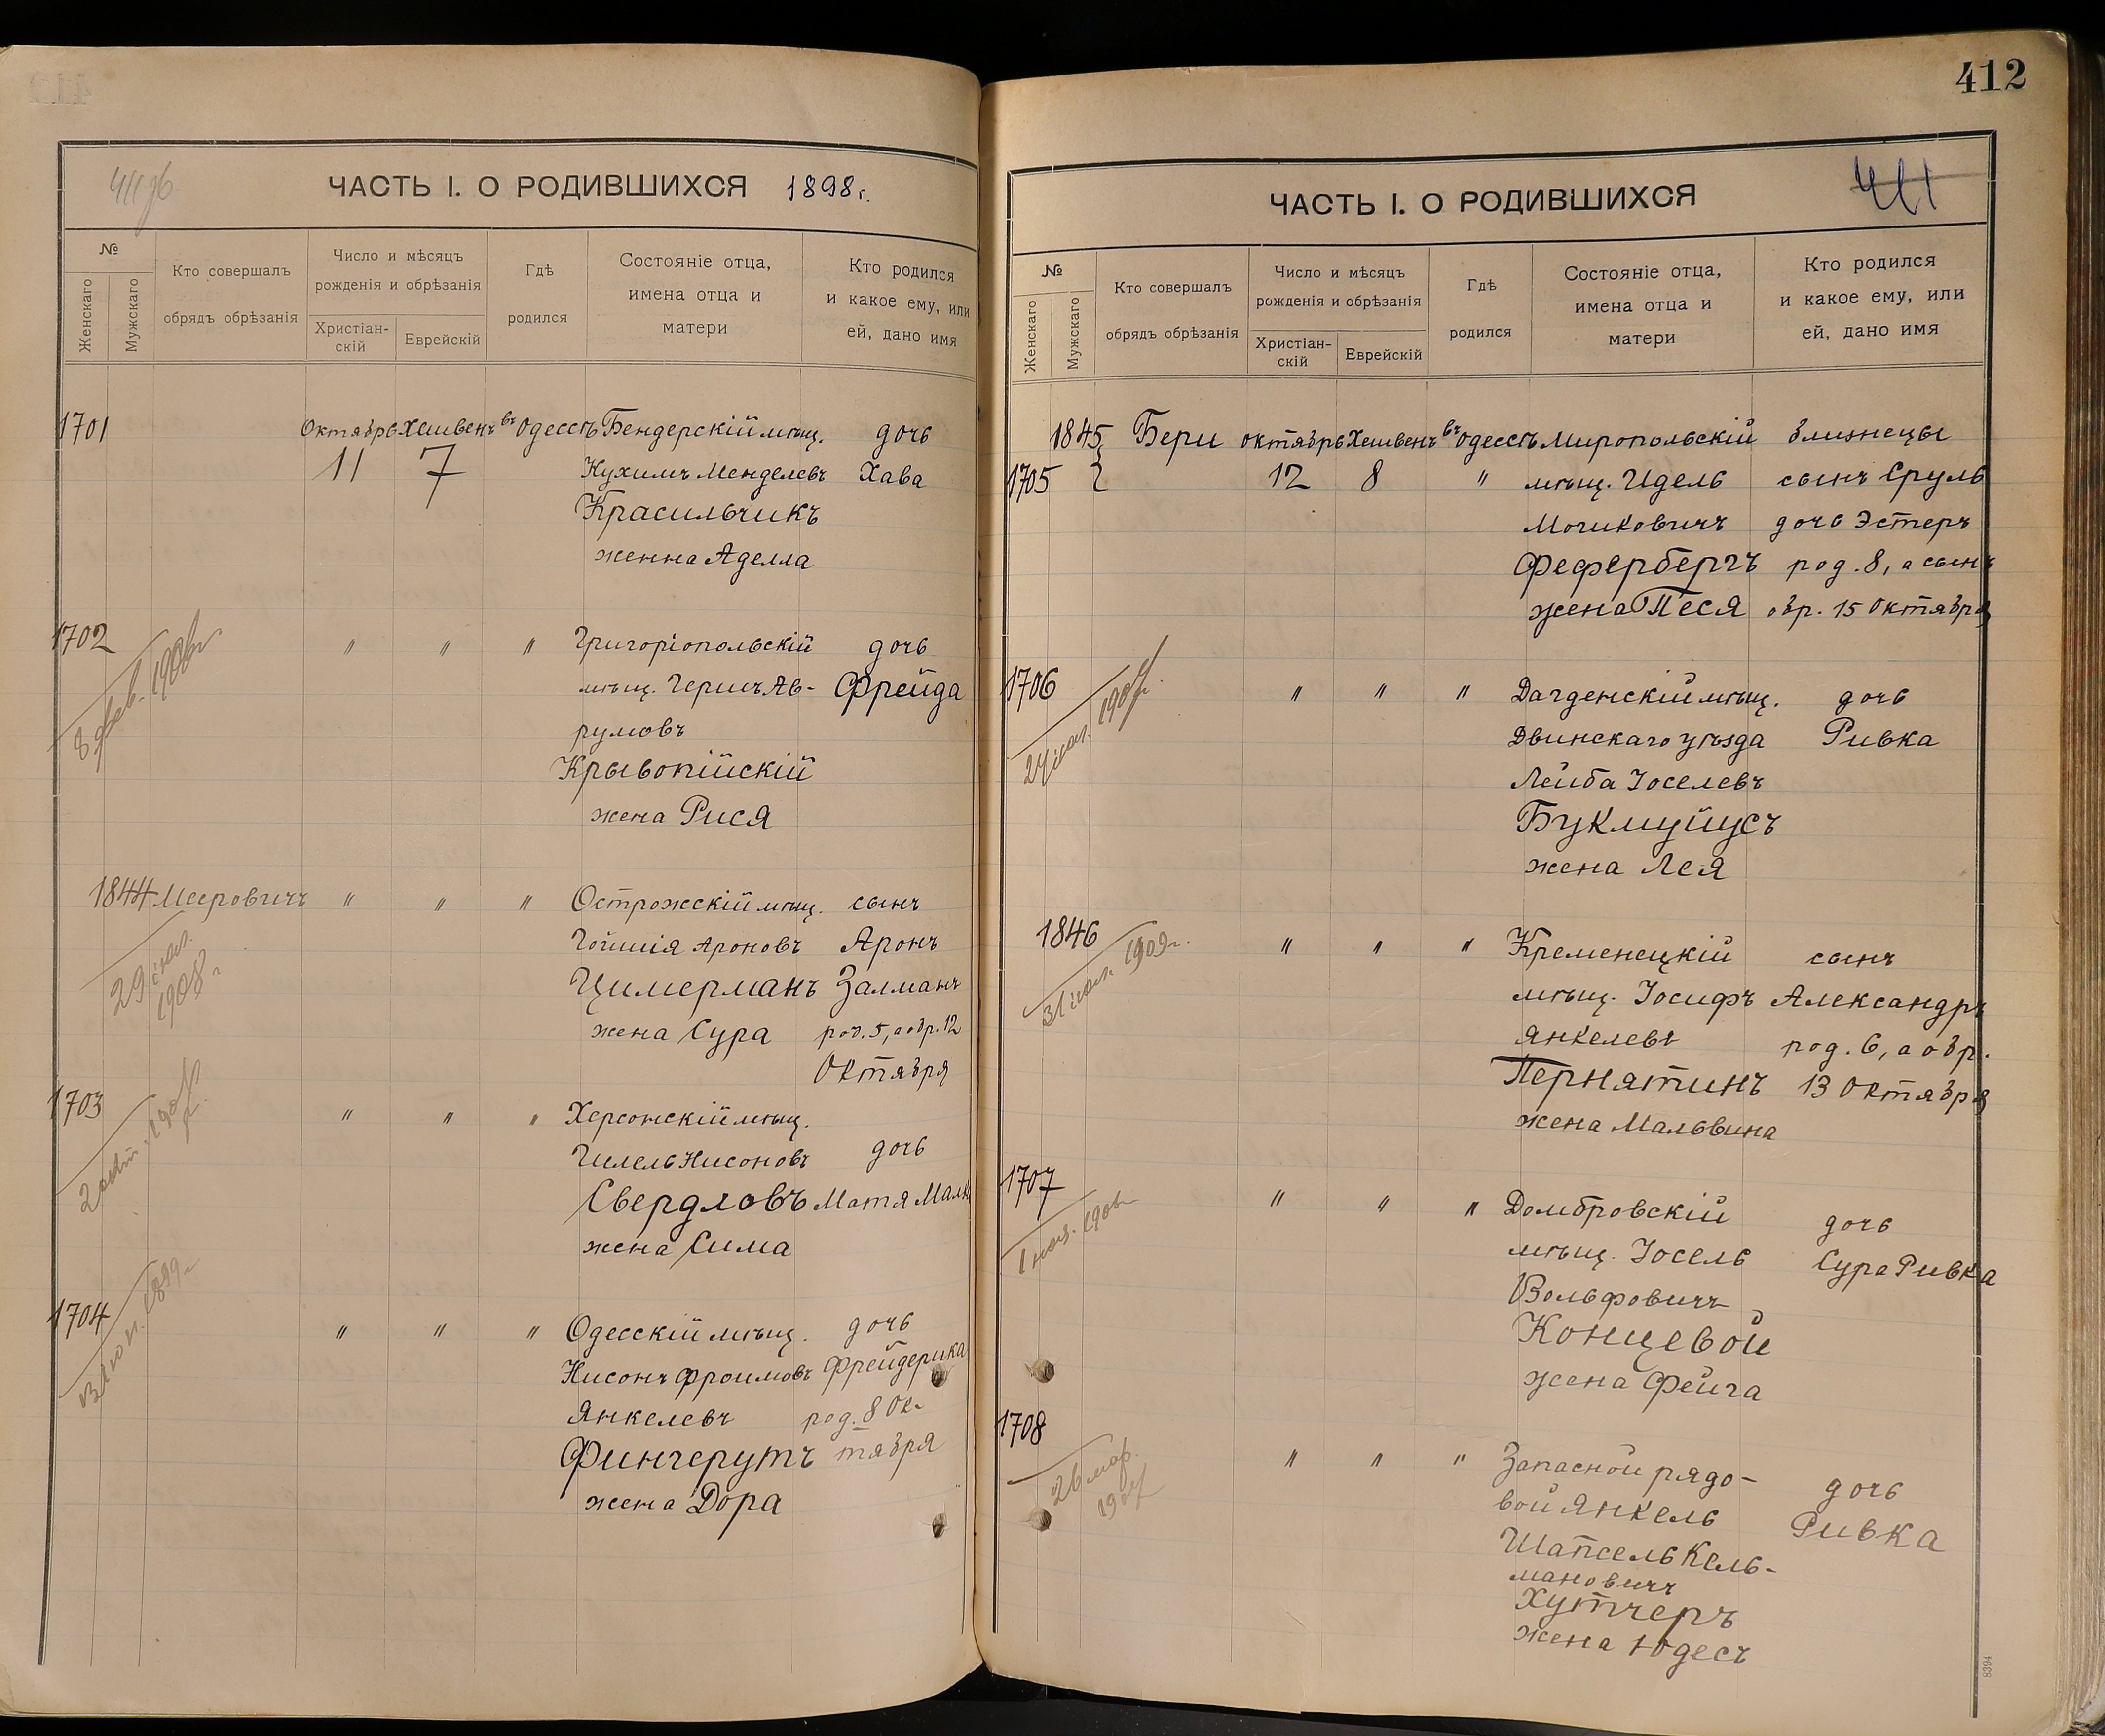 412
411 об
ЧАСТЬ I. О РОДИВШИХСЯ 1898 г.
№
Женскаго
Мужскаго
Кто совершалъ
обрядъ обрѣзанія
Число и мѣсяцъ
рожденія и обрѣзанія
Христіан-
скій
Еврейскій
Гдѣ
родился
Состояніе отца,
имена отца и
матери
Кто родился
и какое ему, или
ей, дано имя
1701 Октябрь Хешвенъ въ Одессѣ Бендерскій мѣщ. дочь
11 7 Нухимъ Менделевъ Хава
Красильчикъ
женна Аделла
1702 " " " Григоріопольскій дочь
8 фев. 1906 г.
мѣщ. Гершъ Ав- Фрейда
румовъ
Крывопійскій
жена Рися
1844 Мееровичъ " " " Острожскій мѣщ. сынъ
29
1908 г
Гойшія Ароновъ Аронъ
Цимерманъ Залманъ
жена Сура род. 5, а обр. 12
Октября
1703 " " " Херсонскій мѣщ.
Гилель Нисоновъ дочь
Свердловъ Матя Малк
жена Сима
1704 " " " Одесскій мѣщ. дочь
1899 г
Нисонъ Фроимовъ Фрейдерика
Янкелевъ род. 8 Ок-
Фингерутъ тября
жена Дора
411
ЧАСТЬ I. О РОДИВШИХСЯ
№
Женскаго
Мужскаго
Кто совершалъ
обрядъ обрѣзанія
Число и мѣсяцъ
рожденія и обрѣзанія
Христіан-
скій
Еврейскій
Гдѣ
родился
Состояніе отца,
имена отца и
матери
Кто родился
и какое ему, или
ей, дано имя
1845 Бери октябрь Хешвенъ въ Одессѣ Миропольскій близнецы
1705 12 8 " мѣщ. Идель сынъ Сруль
Мошковичъ дочь Эстеръ
Фефербергъ род. 8, а сынъ
жена Песя обр. 15 Октября
1706 " " " Дагденскій мѣщ. дочь
Двинскаго уѣзда Ривка
Лейба Іоселевъ
Букмуйусъ
жена Лея
1846 " " " Кременецкій сынъ
1909 г.
мѣщ. Іосифъ Александръ
Янкелевъ род. 6, а обр.
Пернятинъ 13 Октября
жена Мальвина
1707 " " " Домбровскій дочь
мѣщ. Іосель Сура Ривка
Вольфовичъ
Концевой
жена Фейга
1708 " " " Запасной рядо- дочь
26 мар.
вой Янкель Ривка
Шапсель Кель-
мановичъ
Хутчеръ
жена Юдесъ
8394